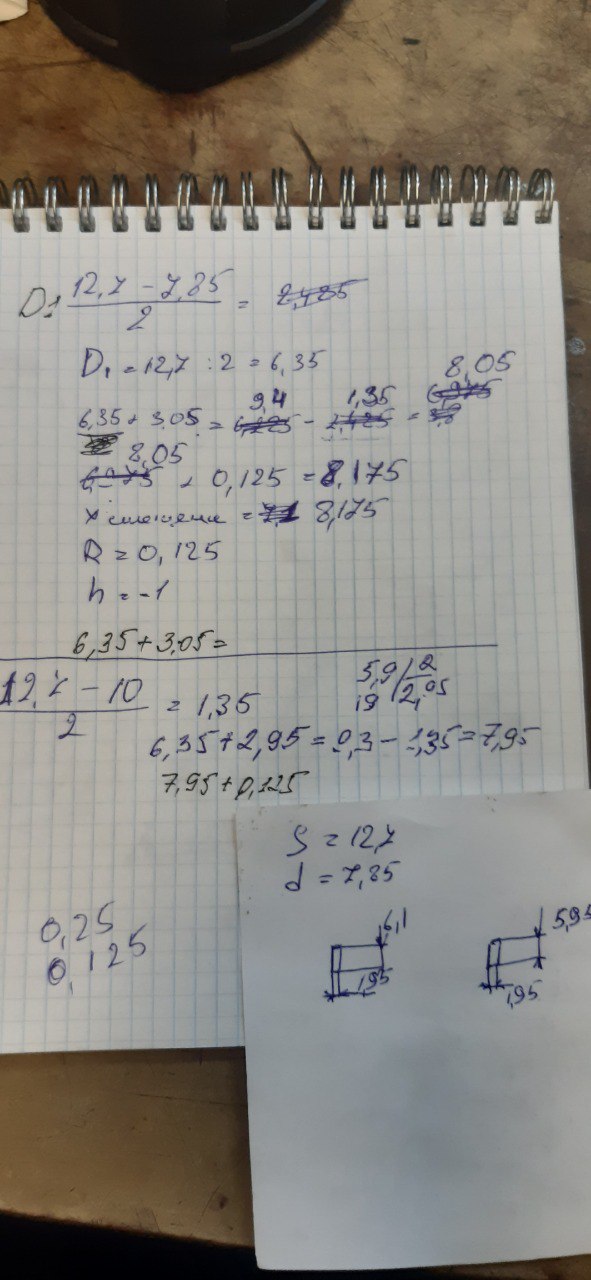 D1 12,7 - 7,85 / 2 = 2,425
D₁ = 12,7 : 2 = 6,35
9,4 1,35 8,05
6,35 + 3,05 = - =
8,05
+ 0,125 = 8,175
x смещение = 8,175
R = 0,125
h = -1
6,35 + 3,05 =
12,7 - 10 / 2 = 1,35
5,9 / 2
19 2,95
6,35 + 2,95 = 9,3 - 1,35 = 7,95
7,95 + 0,125
0,25
0,125
S = 12,7
d = 7,85
6,1 5,95
1,95 1,95